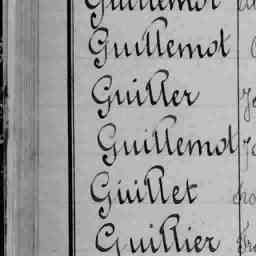 Guillemot
Guillemot
Guiller
Guillemot
Guillet
Guillier